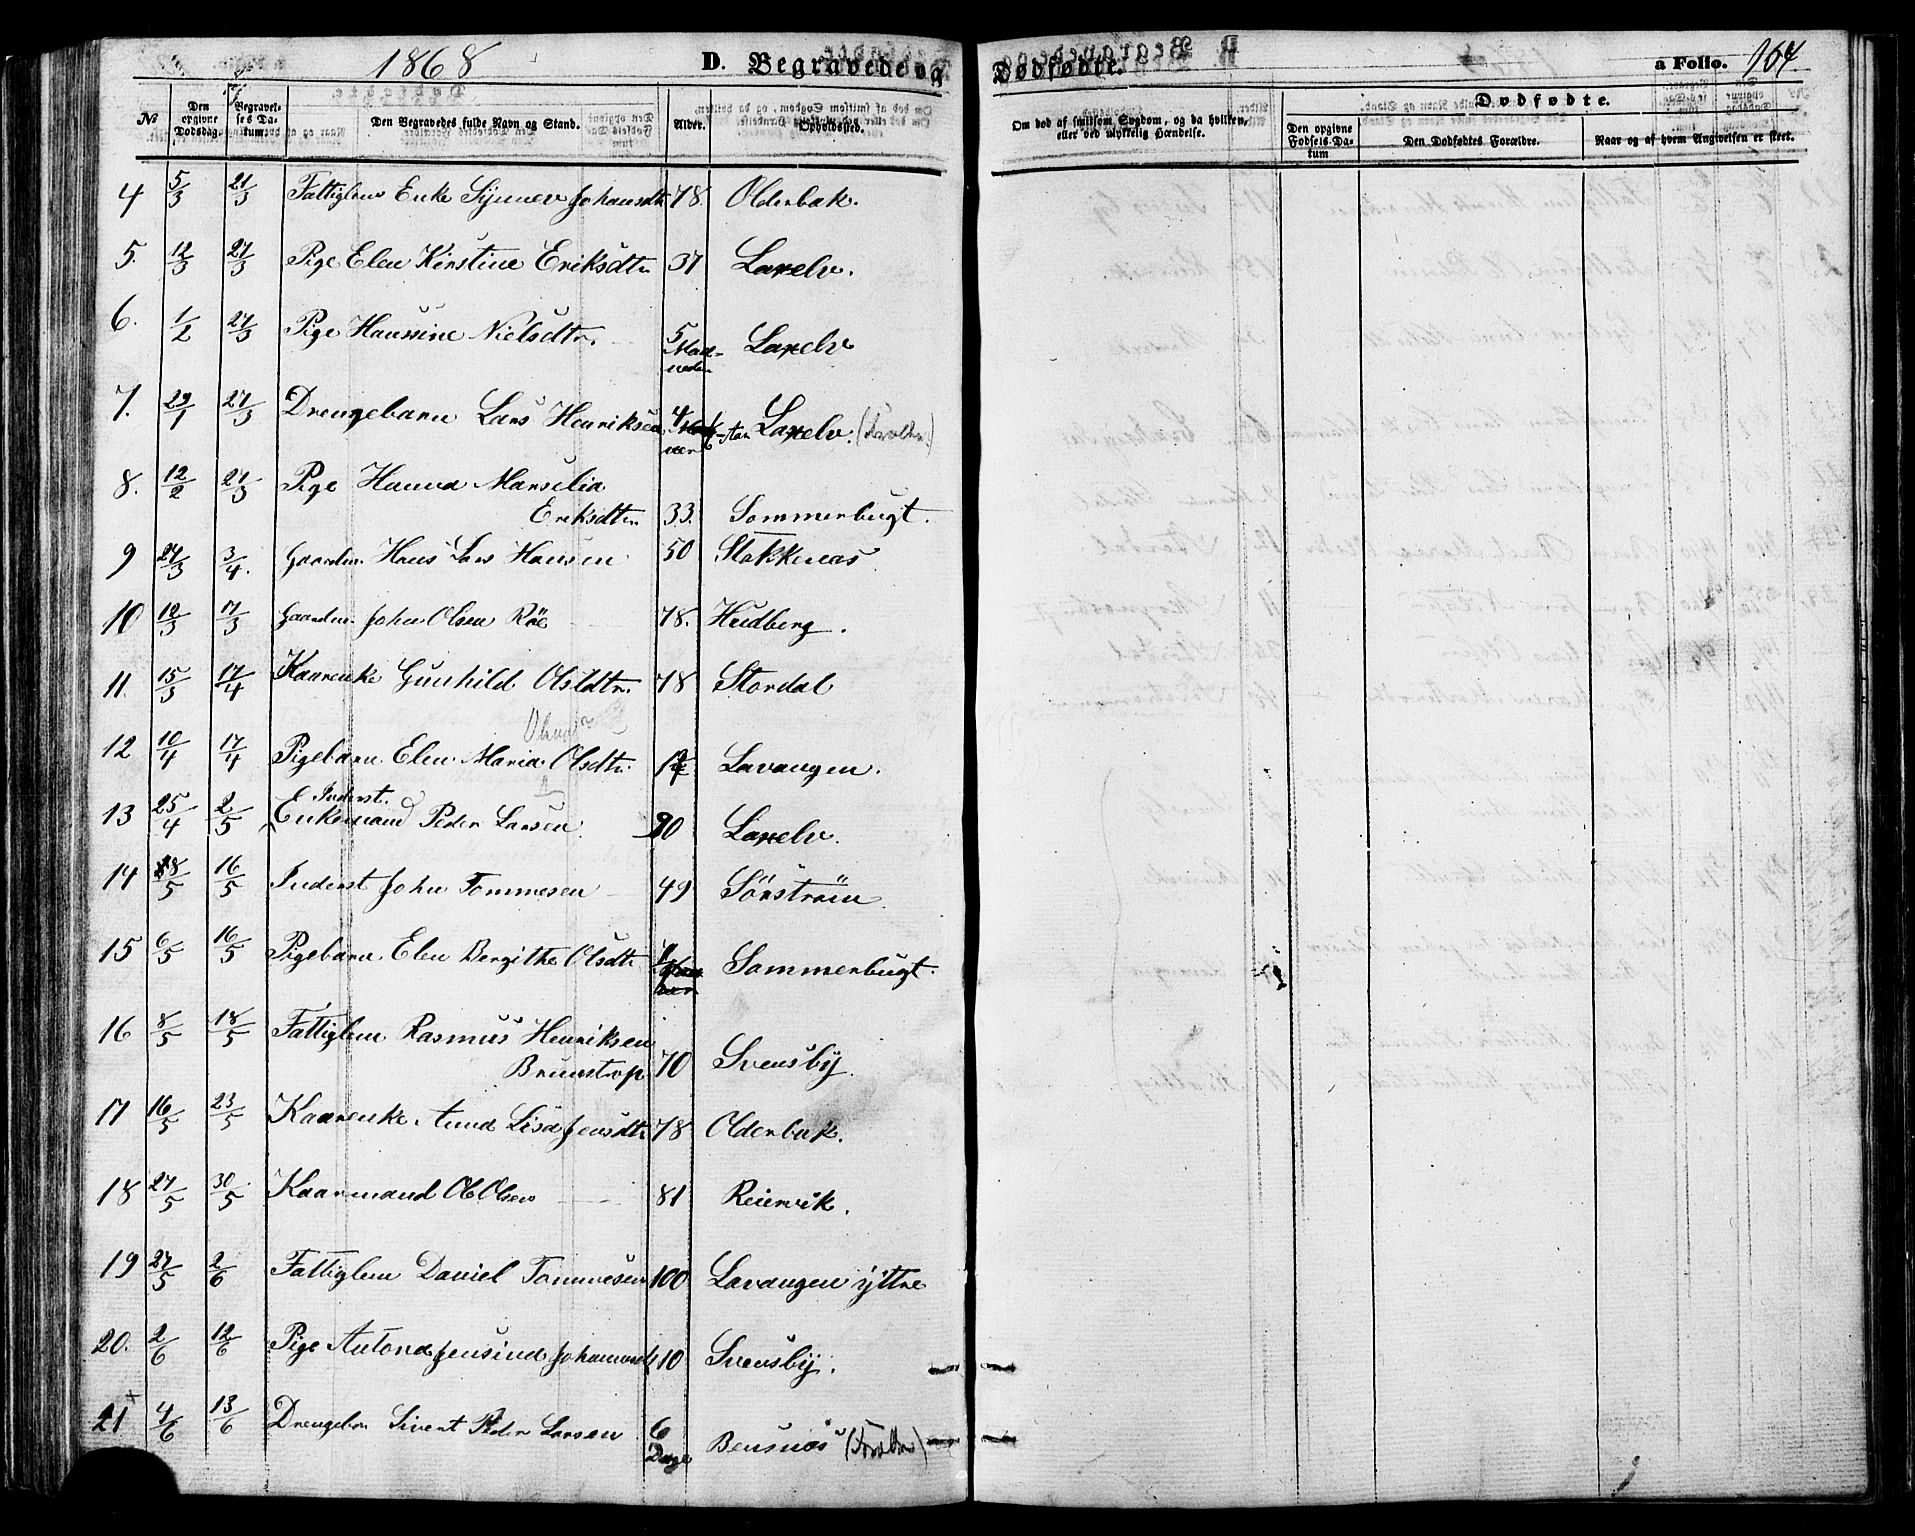 1868 D. Begravede og Dødfødte. a Folio. 164
No Den opgivne Dødsdag. Begravelses Datum. Den Begravedes fulde Navn og Stand. Alder. Opholdssted. Om død af smitsom Sygdom, og da hvilken, eller ved ulykkelig Hændelse. Dødfødte.
Den opgivne Fødsels-Datum Den Dødfødtes Forældre. Naar og af hvem Angivelsen er skeet.
4 5/3 21/3 Fattiglem Enke Synnev Johansdtr 78. Olderbak.
5. 12/3 27/3 Pige Elen Kirstine Eriksdtr 37 Laxelv.
6. 1/2 27/3 Pige Hansine Nielsdtr. 5 Maaneder Laxelv
7. 29/1 27/3 Drengebarn Lars Henriksen 4 Laxelv. (Forældr.)
8. 12/2 27/3 Pige Hanna Marselia
Eriksdtr 33. Sommerbugt.
9 27/3 3/4. Gaardm. Hans Lars Hansen 50 Stokkenæs
10 12/3 17/3 Gaardm. John Olsen Röe 78. Hudberg.
11. 15/3 17/4 Kaarenke Gunhild Olsdtr. 78 Stordal
12 10/4 17/4 Pigebarn Elen Maria Olsdtr. Lavangen.
Inderst.
13 25/4 2/5 Enkemand Peder Larsen Laxelv.
14 18/5 16/5 Inderst John Tommesen 49 Sörström
15 6/5 16/5 Pigebarn Elen Bergithe Olsdtr Sommerbugt.
16 8/5 18/5 Fattiglem Rasmus Henriksen
Brunstrop 70 Svensby.
17 16/5 23/5 Kaarenke Anna Lisa Jensdtr 78 Olderbak.
18 27/5 30/5 Kaarmand Ole Olsen 81 Reiervik.
19 27/5 2/6 Fattiglem Daniel Tommesen 100 Lavangen ÿttre
20. 2/6 12/6 Pige Antona Jensina Johannesdtr 10 Svensby.
21 4/6 13/6 Drengebn Sivert Peder Larsen 6 Dage Bensnæs (Forældr.)